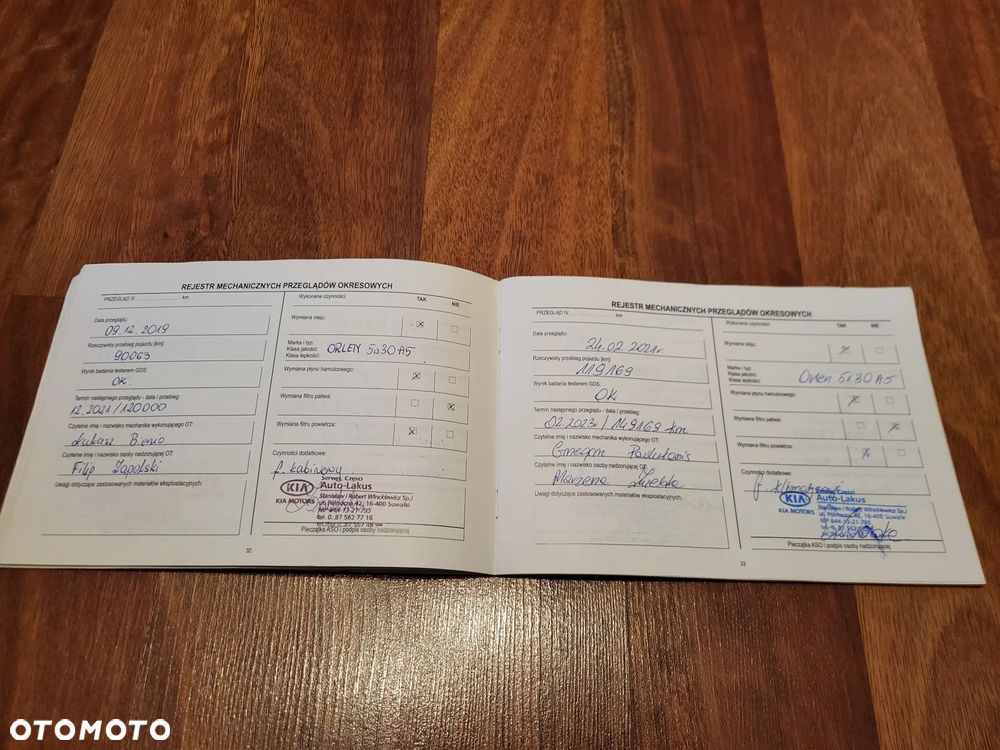 REJESTR MECHANICZNYCH PRZEGLĄDÓW OKRESOWYCH
PRZEGLĄD III km
Data przeglądu:
09.12.2019
Rzeczywisty przebieg pojazdu [km]
90063
Wynik badania testerem GDS:
OK.
Termin następnego przeglądu - data / przebieg:
12.2021/120000
Czytelne imię i nazwisko mechanika wykonującego OT:
Łukasz
Czytelne imię i nazwisko osoby nadzorującej OT:
Filip Zapolski
Uwagi dotyczące zastosowanych materiałów eksploatacyjnych:
Wykonane czynności: TAK NIE
Wymiana oleju: X
Marka i typ:
Klasa jakości: ORLEN 5w30 A5
Klasa lepkości:
Wymiana płynu hamulcowego: X
Wymiana filtru paliwa: X
Wymiana filtru powietrza: X
Czynności dodatkowe:
f. kabinowy
Serwis, Części
KIA Auto-Lakus
KIA MOTORS Stanisław i Robert Winckiewicz Sp.J
ul. Północna 42, 16-400 Suwałki
NIP 844-13-21-795
tel. 0..87 562 77 16
Pieczątka ASO i podpis osoby nadzorującej
32
REJESTR MECHANICZNYCH PRZEGLĄDÓW OKRESOWYCH
PRZEGLĄD IV km
Data przeglądu:
24.02.2021r.
Rzeczywisty przebieg pojazdu [km]
119169
Wynik badania testerem GDS:
OK
Termin następnego przeglądu - data / przebieg:
02.2023r/149169 km
Czytelne imię i nazwisko mechanika wykonującego OT:
Grzegorz
Czytelne imię i nazwisko osoby nadzorującej OT:
Marzena
Uwagi dotyczące zastosowanych materiałów eksploatacyjnych:
Wykonane czynności: TAK NIE
Wymiana oleju: X
Marka i typ:
Klasa jakości: Orlen 5w30 A5
Klasa lepkości:
Wymiana płynu hamulcowego: X
Wymiana filtru paliwa: X
Wymiana filtru powietrza: X
Czynności dodatkowe:
f.
Serwis, Części
KIA Auto-Lakus
KIA MOTORS Stanisław i Robert Winckiewicz Sp.J
ul. Północna 42, 16-400 Suwałki
NIP 844-13-21-795
tel. 0..87 562
Pieczątka ASO i podpis osoby nadzorującej
33
OTOMOTO